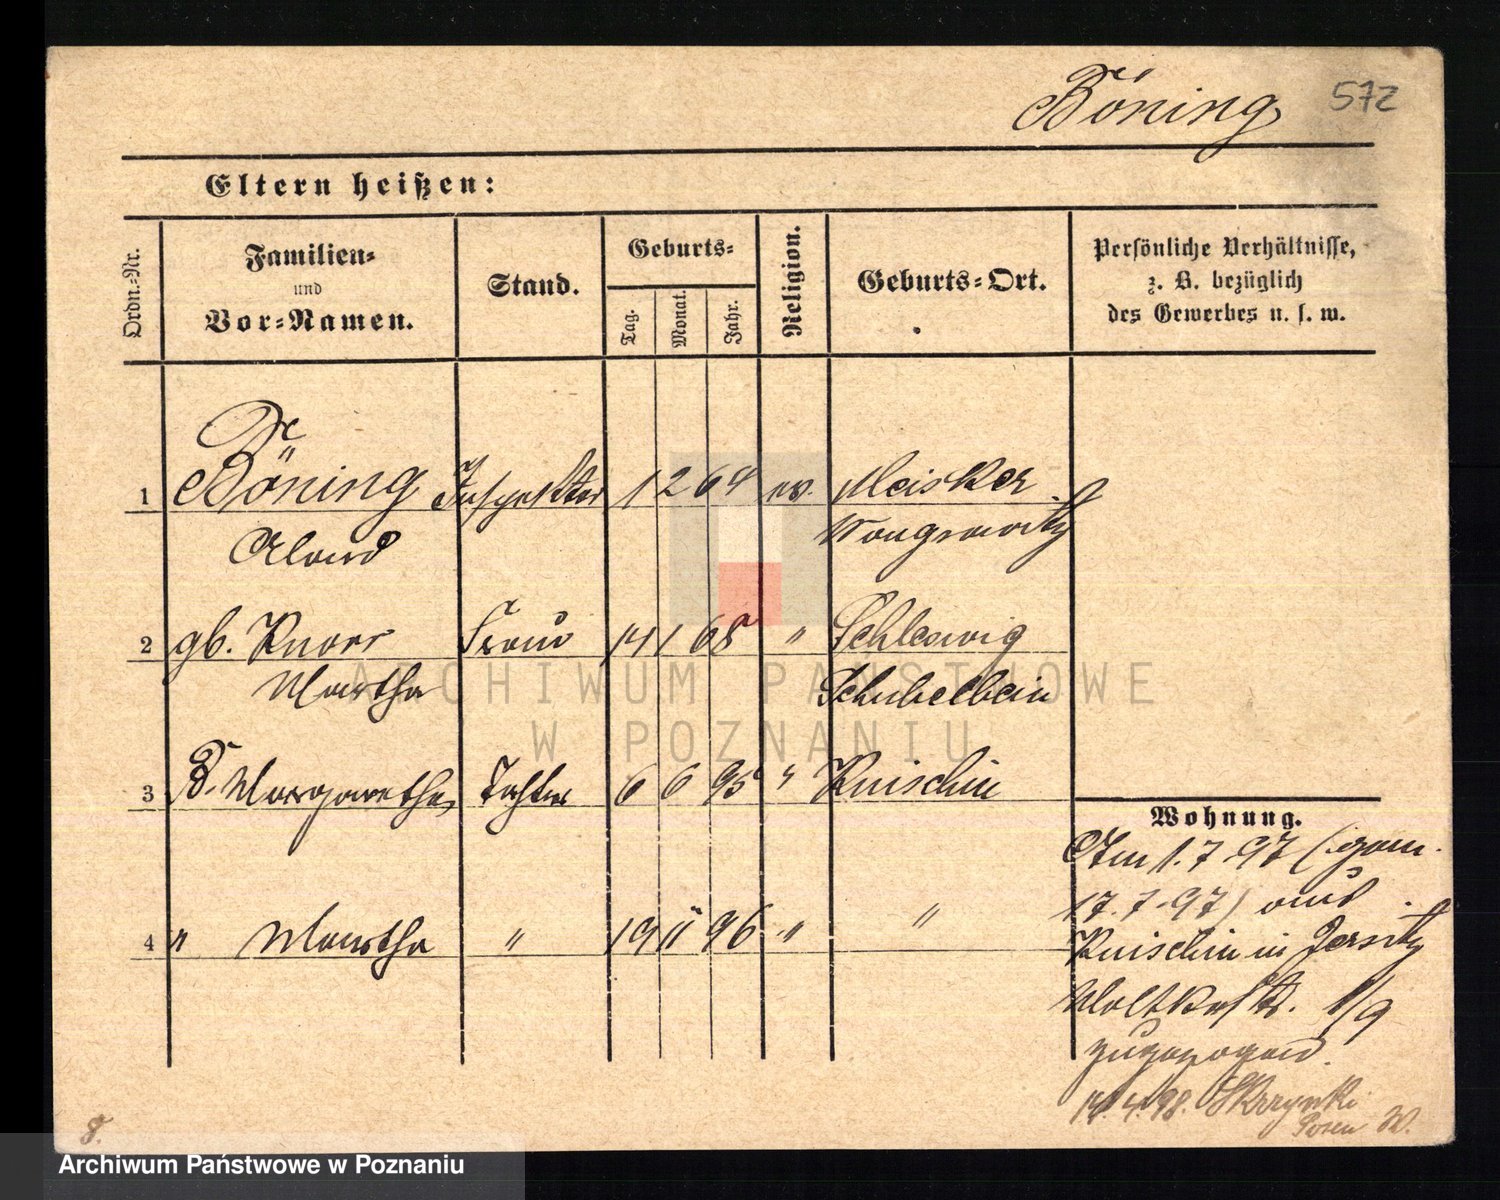 Böning 572
Eltern heißen:
Ordn.=Nr.
Familien=
und
Vor=Namen.
Stand.
Geburts=
Tag.
Monat.
Jahr.
Religion.
Geburts=Ort.
Persönliche Verhältnisse,
z. B. bezüglich
des Gewerbes u. s. w.
1 Böning Inspektor 1 2 64 ev.
Wongrowitz
2 gb. Knorr Frau 14 1 68 " Schleswig
Martha
3 B. Margarethe Tochter 6 6 95 " Kuischin
4 " Martha " 19 11 96 " "
Wohnung.
Am 1.7.97 (gem.
17.7.97) aus
Kuischin in Jersitz
Moltkestr. 8/9
zugezogen.
14.4.98. Skrzynki
Posen W.
8.
ARCHIWUM PAŃSTWOWE
W POZNANIU
Archiwum Państwowe w Poznaniu